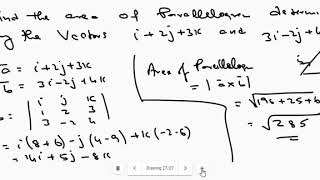 find the area of Parallelogram determin
by the Vectors i+2j+3k and 3i-2j+4
a = i+2j+3k
b = 3i-2j+4k
i j k
1 2 3
3 -2 4
= i(8+6) - j(4-9) + k(-2-6)
= 14i + 5j - 8k
Area of Parallelogm
= |a×b|
= √196+25+6
= √285
Drawing 27/27